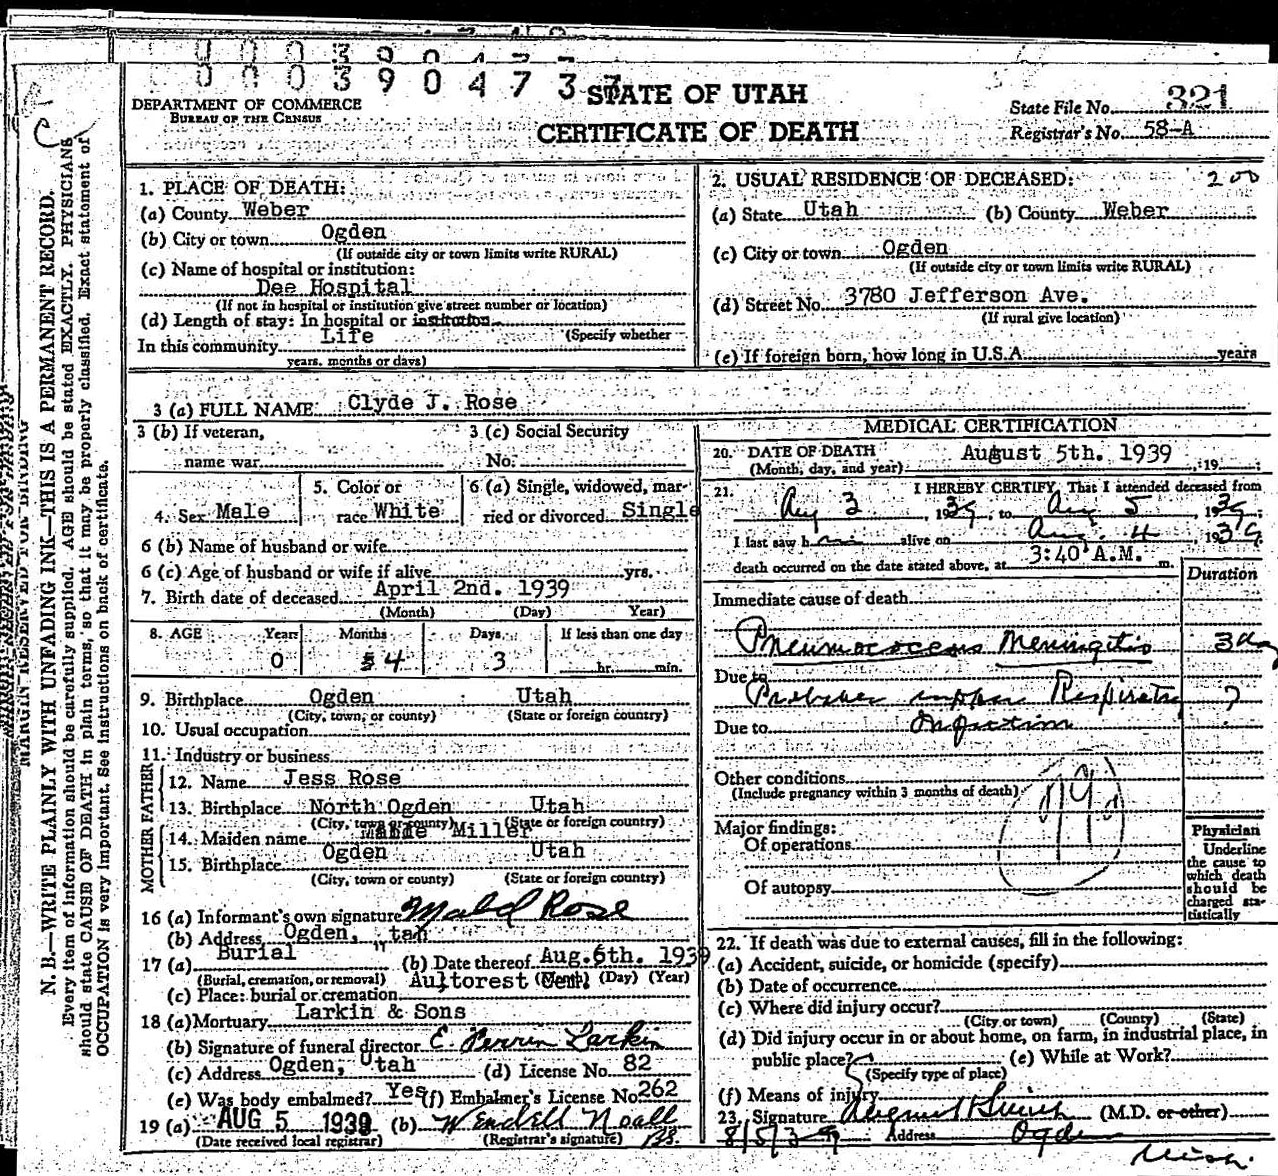 0003904737
STATE OF UTAH
CERTIFICATE OF DEATH
DEPARTMENT OF COMMERCE
BUREAU OF THE CENSUS
State File No. 321
Registrar's No. 58-A
N. B.—WRITE PLAINLY WITH UNFADING INK—THIS IS A PERMANENT RECORD.
Every item of information should be carefully supplied. AGE should be stated EXACTLY. PHYSICIANS
should state CAUSE OF DEATH in plain terms, so that it may be properly classified. Exact statement of
OCCUPATION is very important. See instructions on back of certificate.
MARGIN RESERVED FOR BINDING
1. PLACE OF DEATH:
(a) County Weber
(b) City or town Ogden
(If outside city or town limits write RURAL)
(c) Name of hospital or institution:
Dee Hospital
(If not in hospital or institution give street number or location)
(d) Length of stay: In hospital or institution
(Specify whether
In this community Life
years, months or days)
2. USUAL RESIDENCE OF DECEASED: 200
(a) State Utah (b) County Weber
(c) City or town Ogden
(If outside city or town limits write RURAL)
(d) Street No. 3780 Jefferson Ave.
(If rural give location)
(e) If foreign born, how long in U.S.A. years
3 (a) FULL NAME Clyde J. Rose
3 (b) If veteran,
name war
3 (c) Social Security
No.
4. Sex Male
5. Color or
race White
6 (a) Single, widowed, mar-
ried or divorced Single
6 (b) Name of husband or wife
6 (c) Age of husband or wife if alive yrs.
7. Birth date of deceased April 2nd. 1939
(Month) (Day) Year)
8. AGE Years Months Days If less than one day
0 4 3 hr. min.
9. Birthplace Ogden Utah
(City, town, or county) (State or foreign country)
10. Usual occupation
11. Industry or business
FATHER
12. Name Jess Rose
13. Birthplace North Ogden Utah
(City, town or county) (State or foreign country)
MOTHER
14. Maiden name Miller
15. Birthplace Ogden Utah
(City, town or county) (State or foreign country)
16 (a) Informant's own signature Rose
(b) Address Ogden, Utah
17 (a) Burial (b) Date thereof Aug. 6th. 1939
(Burial, cremation, or removal) (Month) (Day) (Year)
(c) Place: burial or cremation Aultorest
18 (a) Mortuary Larkin & Sons
(b) Signature of funeral director E. Perrin Larkin
(c) Address Ogden, Utah (d) License No. 82
(e) Was body embalmed? Yes (f) Embalmer's License No. 262
19 (a) AUG 5 1939 (b) Wendell Noall
(Date received local registrar) (Registrar's signature)
MEDICAL CERTIFICATION
20. DATE OF DEATH August 5th. 1939
(Month, day, and year) , 19 ;
21. I HEREBY CERTIFY, That I attended deceased from
Aug 3, 1939, to Aug 5, 1939;
I last saw him alive on Aug. 4, 1939.
death occurred on the date stated above, at 3:40 A.M. m.
Duration
Immediate cause of death
Pneumococcus Meningitis 3 day
Due to
Probable upper Respiratory ?
Due to Infection
Other conditions
(Include pregnancy within 3 months of death)
Major findings:
Of operations
Of autopsy
Physician
Underline
the cause to
which death
should be
charged sta-
tistically
22. If death was due to external causes, fill in the following:
(a) Accident, suicide, or homicide (specify)
(b) Date of occurrence
(c) Where did injury occur?
(City or town) (County) (State)
(d) Did injury occur in or about home, on farm, in industrial place, in
public place? (e) While at Work?
(Specify type of place)
(f) Means of injury
23. Signature (M.D. or other)
8/5/39 Address Ogden